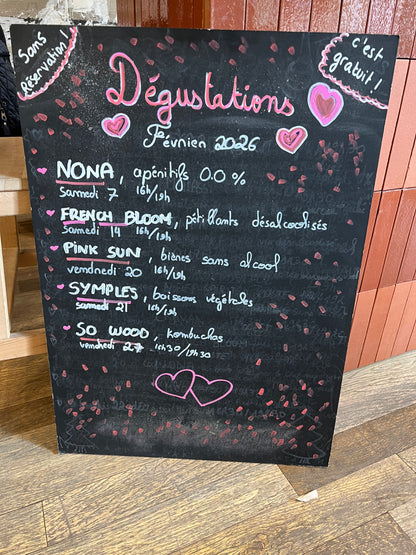 Sans
Réservation !
c'est
gratuit !
Dégustations
Février 2026
NONA, apéritifs 0.0 %
Samedi 7 16h/19h
FRENCH BLOOM, pétillants désalcoolisés
Samedi 14 16h/19h
PINK SUN, bières sans alcool
vendredi 20 16h/19h
SYMPLES, boissons végétales
samedi 21 16h/19h
SO WOOD, kombuchas
vendredi 27 16h30/19h30